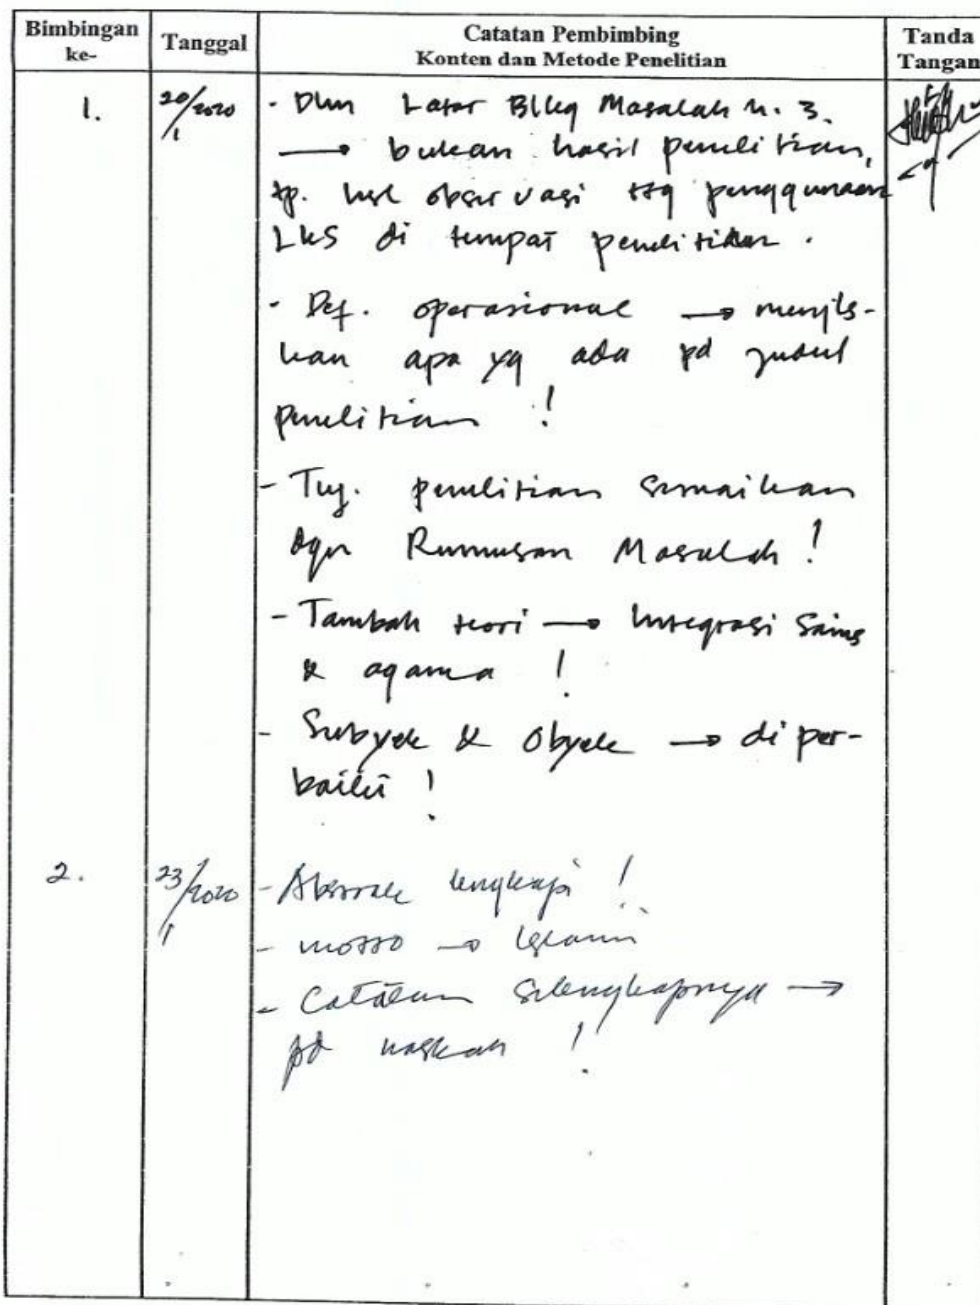 Bimbingan ke-
Tanggal
Catatan Pembimbing
Konten dan Metode Penelitian
Tanda Tangan
1.
20/1/2020
- Dlm Latar Blkg Masalah h. 3.
→ bukan hasil penelitian,
tp. hsl observasi ttg penggunaan
LKS di tempat penelitian.
- Def. operasional → menjls-
kan apa yg ada pd judul
penelitian !
- Tuj. penelitian sesuaikan
dgn Rumusan Masalah !
- Tambah teori → Integrasi Sains
& agama !
- Subyek & Obyek → diper-
baiki !
2.
23/1/2020
- Abstrak lengkapi !
- motto →
- Catatan selengkapnya →
pd naskah !